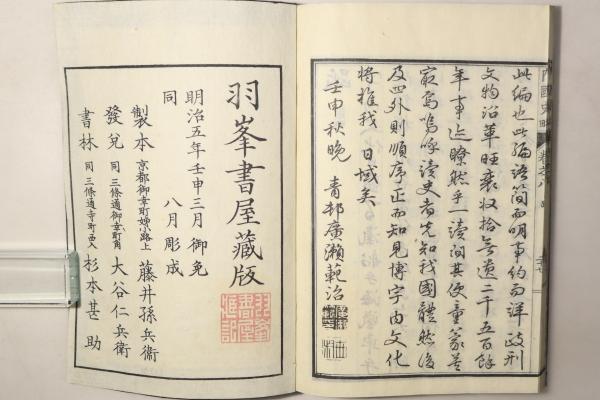 此編也此編語簡而明事約而詳政刑
文物沿革旺衰収拾無遺二千五百餘
年事迹瞭然乎一讀間其便童蒙甚
寂寫嗚呼讀史者先知我國體然後
及四外則順序正而知見博字内文化
將推我日域矣
壬申秋晚 青邨廣瀨範治
羽峯書屋藏版
明治五年壬申三月御免
同 八月彫成
製本 京都御幸町姉小路上 藤井孫兵衞
發兌 同三條通御幸町角 大谷仁兵衞
書林 同三條通寺町西入 杉本甚助